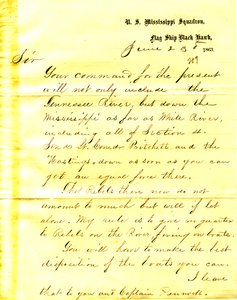 U. S. Mississippi Squadron,
Flag Ship Black Hawk,
June 2 1863.
Sir
Your command for the present
will not only include the
Tennessee River, but down the
Mississippi as far as White River,
including all of Section
Send Lt. Comdr Pritchett and the
Hastings down as soon as you can
get an equal force there.
The Rebels there now do not
amount to much but will if let
alone. My rule is to give no quarter
to Rebels on the River firing on boats.
You will have to make the best
disposition of the boats you can.
I leave
that to you and Captain Pennock.